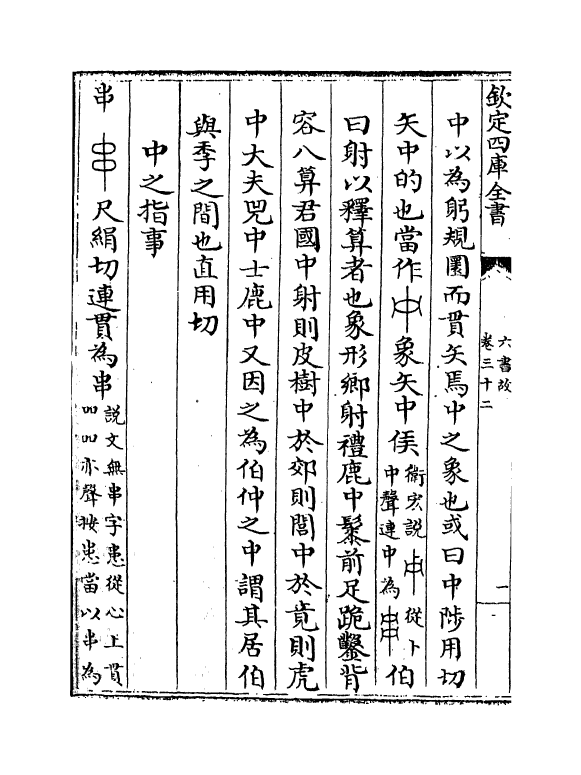 欽定四庫全書
六書故
卷三十二
一
中以為躬規圜而貫矢焉中之象也或曰中陟用切
矢中的也當作象矢中侯衞宏說从卜中聲連中為伯
曰射以釋算者也象形鄉射禮鹿中髤前足跪鑿背
容八算君國中射則皮樹中於郊則閭中於竟則虎
中大夫兕中士鹿中又因之為伯仲之中謂其居伯
與季之間也直用切
中之指事
串尺絹切連貫為串說文無串字患從心上貫吅吅亦聲按患當以串為